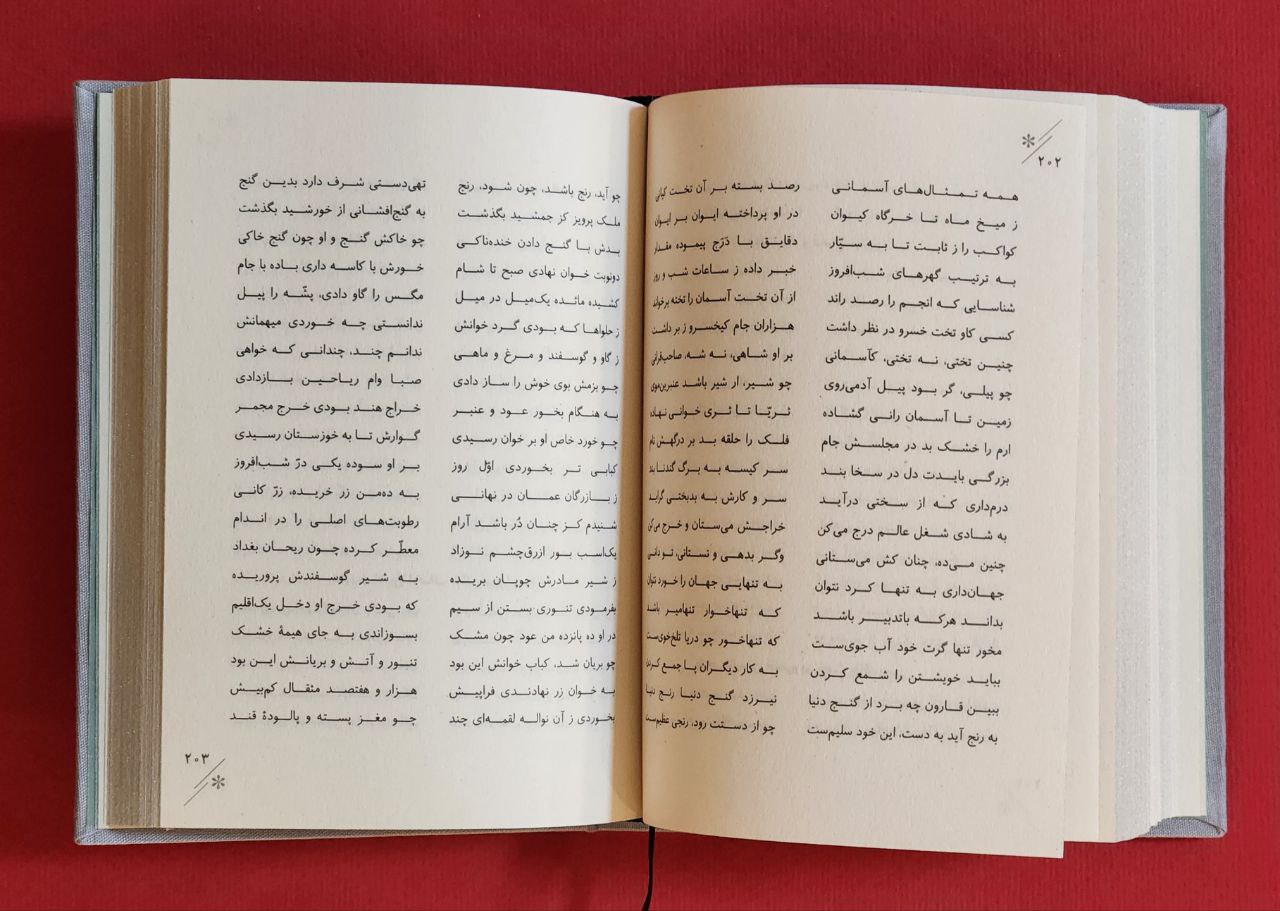 ۲۰۲
همه تمثال‌های آسمانی رصد بسته بر آن تخت کیانی
ز میخ ماه تا خرگاه کیوان در او پرداخته ایوان بر ایوان
کواکب را ز ثابت تا به سیّار دقایق با دَرَج پیموده مقدار
به ترتیب گهرهای شب‌افروز خبر داده ز ساعات شب و روز
شناسایی که انجم را رصد راند از آن تخت آسمان را تخته برخواند
کسی کاو تخت خسرو در نظر داشت هزاران جام کیخسرو ز بر داشت
چنین تختی، نه تختی، کآسمانی بر او شاهی، نه شه، صاحب‌قرانی
چو پیلی، گر بود پیل آدمی‌روی چو شیر، ار شیر باشد عنبرین‌موی
زمین تا آسمان رانی گشاده ثریّا تا ثری خوانی نهاده
ارم را خشک بد در مجلسش جام فلک را حلقه بد بر درگهش نام
بزرگی بایدت دل در سخا بند سر کیسه به برگ گندنا بند
درم‌داری که از سختی درآید سر و کارش به بدبختی گراید
به شادی شغل عالم درج می‌کن خراجش می‌ستان و خرج می‌کن
چنین می‌ده، چنان کش می‌ستانی وگر بدهی و نستانی، تو دانی
جهان‌داری به تنها کرد نتوان به تنهایی جهان را خورد نتوان
بداند هرکه باتدبیر باشد که تنهاخوار تنهامیر باشد
مخور تنها گرت خود آب جوی‌ست که تنهاخور چو دریا تلخ‌خوی‌ست
بباید خویشتن را شمع کردن به کار دیگران پا جمع کردن
ببین قارون چه برد از گنج دنیا نیرزد گنج دنیا رنج دنیا
به رنج آید به دست، این خود سلیم‌ست چو از دستت رود، رنجی عظیم‌ست
چو آید، رنج باشد، چون شود، رنج تهی‌دستی شرف دارد بدین گنج
ملک پرویز کز جمشید بگذشت به گنج‌افشانی از خورشید بگذشت
بدش با گنج دادن خنده‌ناکی چو خاکش گنج و او چون گنج خاکی
دونوبت خوان نهادی صبح تا شام خورش با کاسه داری باده با جام
کشیده مائده یک‌میل در میل مگس را گاو دادی، پشّه را پیل
ز حلواها که بودی گرد خوانش ندانستی چه خوردی میهمانش
ز گاو و گوسفند و مرغ و ماهی ندانم چند، چندانی که خواهی
چو بزمش بوی خوش را ساز دادی صبا وام ریاحین بازدادی
به هنگام بخور عود و عنبر خراج هند بودی خرج مجمر
چو خورد خاص او بر خوان رسیدی گوارش تا به خوزستان رسیدی
کبابی تر بخوردی اوّل روز بر او سوده یکی درّ شب‌افروز
ز بازرگان عمان در نهانی به ده‌من زر خریده، زرّ کانی
شنیدم کز چنان دُر باشد آرام رطوبت‌های اصلی را در اندام
یک‌اسب بور ازرق‌چشم نوزاد معطّر کرده چون ریحان بغداد
ز شیر مادرش چوپان بریده به شیر گوسفندش پروریده
بفرمودی تنوری بستن از سیم که بودی خرج او دخل یک‌اقلیم
در او ده پانزده من عود چون مشک بسوزاندی به جای هیمهٔ خشک
چو بریان شد، کباب خوانش این بود تنور و آتش و بریانش این بود
به خوان زر نهادندی فراپیش هزار و هفتصد مثقال کم‌بیش
بخوردی ز آن نواله لقمه‌ای چند چو مغز پسته و پالودهٔ قند
۲۰۳